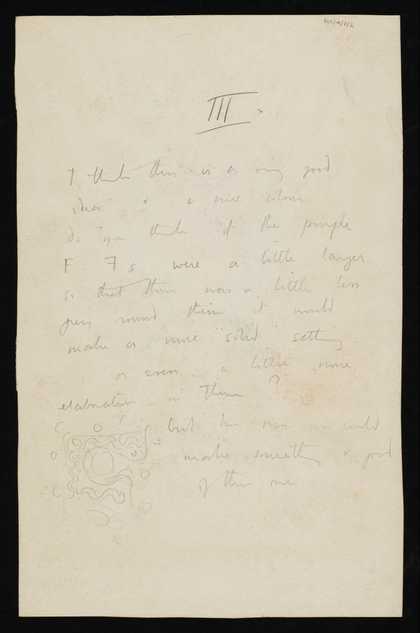 III
I think this is a very good
idea & a nice colour
do you think if the purple
F Fs were a little larger
so that there was a little less
grey round them it would
make a more solid setting
or even a little more
elaboration in them ?
but
make something good
of this one